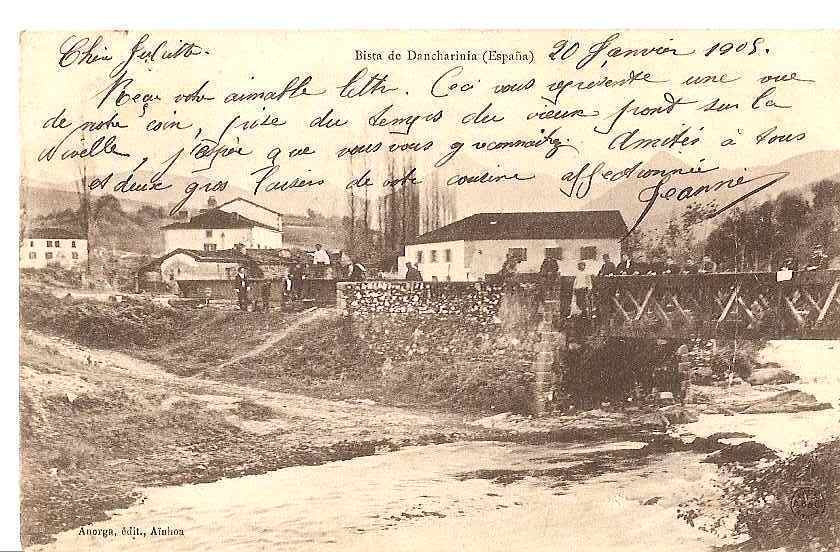 Chère Juliette.
Bista de Dancharinia (España)
20 Janvier 1905.
Reçu votre aimable lettre. Ceci vous représente une vue
de notre coin, prise du temps du vieux pont sur la
Nivelle, j'espère que vous vous y reconnaitrez. Amitiés à tous
et deux gros baisers de votre cousine affectionnée
Jeanne
Anorga, édit., Aïnhoa